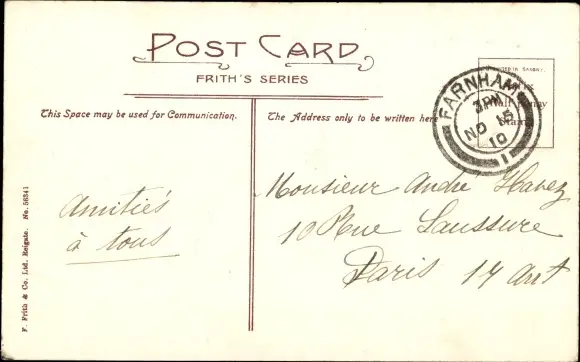 POST CARD
FRITH'S SERIES
This Space may be used for Communication.
The Address only to be written here
FARNHAM
3 PM
NO 18
10
1
Half Penny
Stamp
Amitiés
à tous
Monsieur André Havez
10 Rue Saussure
Paris 17 arrt
F. Frith & Co. Ltd. Reigate. No. 56341